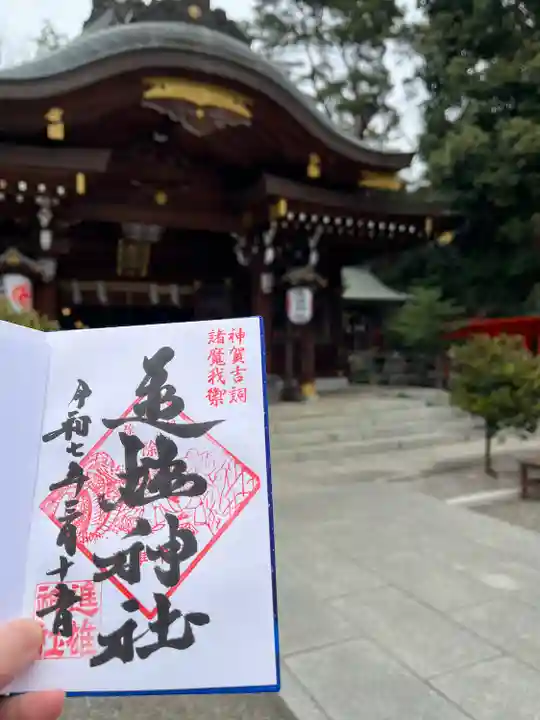 神賀吉詞
諸魔我禦
進雄神社
令和七年三月十日
進雄
神社